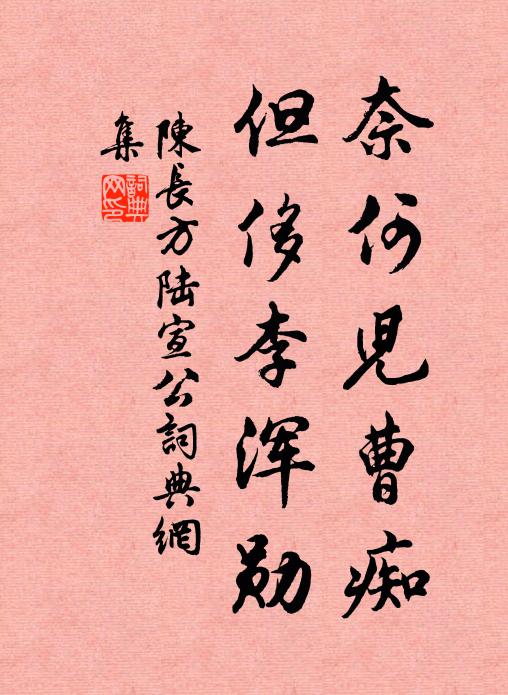 奈何兒曹痴
但侈李渾勛
陳長方陸宣公詞典網
集
詞典
网印